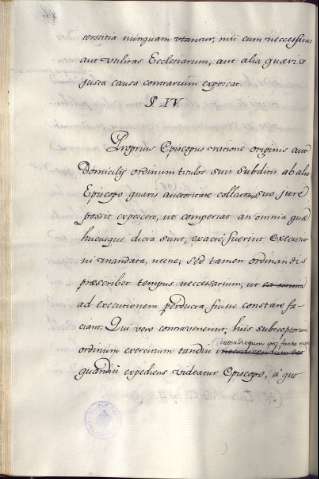 tersticia nunquam utantur, nisi cum necessitas
aut utilitas Ecclesiarum, aut alia quævis
justa causa contrarium exposcat.
§ IV.
Proprius Episcopus ratione originis aut
Domicilii ordinum titulo sui subditi ab alio
Episcopo quavis auctoritate collatos, suo jure
possit expetere, ut comperiat an omnia quæ
hucusque dicta sunt, exacte fuerint executio
ni mandata, necne; sed tamen ordinandis
præscribet tempus necessarium, ut
ad executionem perducta fuisse constare fa
ciant. Qui vero contravenerint, huic subreptorum
ordinum exercitium tandiu
quandiu expediens videatur Episcopo, a quo